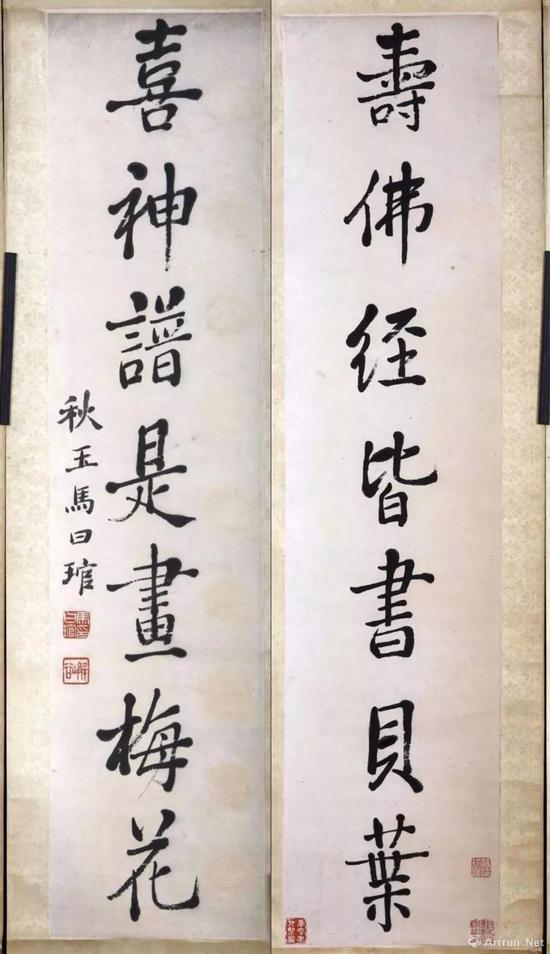 壽佛經皆書貝葉
喜神譜是畫梅花
秋玉馬曰琯
Artron.Net